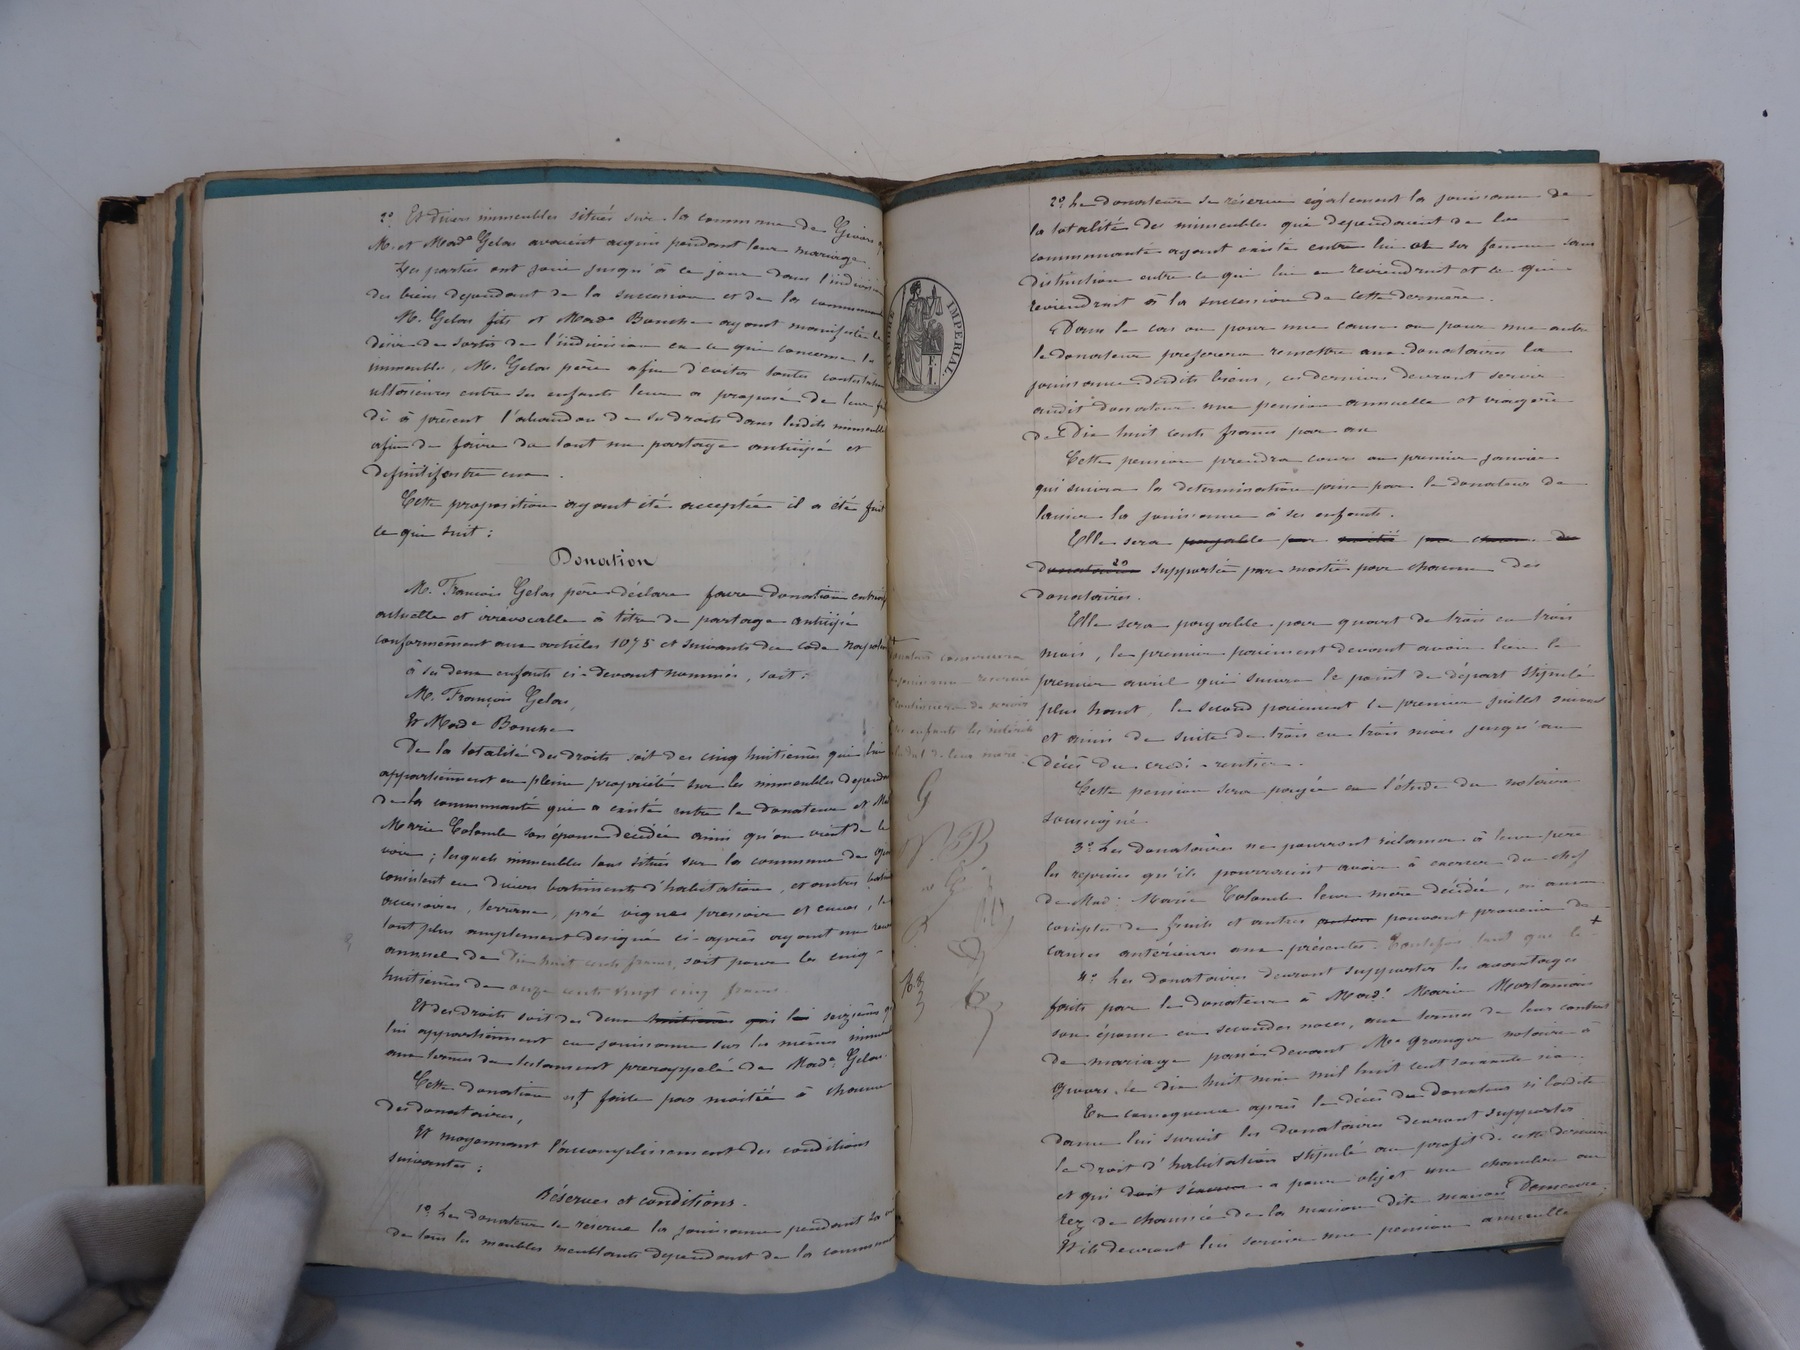 2° Et divers immeubles situés sur la commune de Givors q
M. et Made Gelas avaient acquis pendant leur mariage.
Les parties ont joui jusqu'à ce jour dans l'indivision
des biens dependant de la succession et de la communauté
M. Gelas fils et Made Bouche ayant manifesté le
désir de sortir de l'indivision en ce qui concerne les
immeubles, M. Gelas père afin d'eviter toutes contestations
ultérieures entre ses enfants leur a proposé de leur f
dès à présent l'abandon de ses droits dans lesdits immeubles
afin de faire du tout un partage anticipé et
definitif entre eux.
Cette proposition ayant été acceptée il a été fait
ce qui suit :
Donation
M. François Gelas père déclare faire donation entrevifs
actuelle et irrévocable à titre de partage anticipé
conformement aux articles 1075 et suivants du code napoléon
à ses deux enfants ci-devant nommés, soit :
M. François Gelas,
Et Made Bouche
De la totalité des droits soit des cinq huitièmes qui lui
appartiennent en pleine propriété sur les immeubles dependant
de la communauté qui a existé entre le donateur et Made
Marie Colombe son épouse décédée ainsi qu'on vient de le
voir ; lesquels immeubles tous situés sur la commune de Givors
consistent en divers batiments d'habitation, et autres batiments
accessoires, terrains, pré vignes pressoir et cuves, le
tout plus amplement designé ci-après ayant un revenu
annuel de dix huit cents francs, soit pour les cinq
huitièmes de onze cents vingt cinq francs.
Et des droits soit des deux huitièmes qui lui seizièmes qui
lui appartiennent en jouissance sur les mêmes immeubles
aux termes du testament prerappelé de Made Gelas.
Cette donation est faite par moitié à chacun
des donataires,
Et moyennant l'accomplissement des conditions
suivantes :
Réserves et conditions.
1° Le donateur se réserve la jouissance pendant sa vie
de tous les meubles meublants dependant de la communauté
TIMBRE IMPERIAL
2° Le donateur se réserve également la jouissance de
la totalité des immeubles qui dependaient de la
communauté ayant existé entre lui et sa femme sans
distinction entre ce qui lui en reviendrait et ce qui
reviendrait à la succession de cette dernière.
Dans le cas ou pour une cause ou pour une autre
le donateur preferera remettre aux donataires la
jouissance desdits biens, ces derniers devront servir
audit donateur une pension annuelle et viagère
de Dix huit cents francs par an
Cette pension prendra cours au premier janvier
qui suivra la determination prise par le donateur de
laisser la jouissance à ses enfants.
Elle sera payable par moitié par chacun des
donataires supportée par moitié par chacun des
donataires.
Elle sera payable par quart de trois en trois
mois, le premier paiement devant avoir lieu le
premier avril qui suivra le point de départ stipulé
plus haut, le second paiement le premier juillet suivant
et ainsi de suite de trois en trois mois jusqu'au
décès du credi-rentier.
Cette pension sera payée en l'étude du notaire
soussigné.
3° Les donataires ne pourront réclamer à leur père
les reprises qu'ils pourraient avoir à exercer du chef
de Made Marie Colombe leur mère décédée, ni aucun
comptes de fruits et autres pouvant provenir de
causes antérieures aux présentes. Toutefois tant que le +
4° Les donataires devront supporter les avantages
faits par le donateur à Made Marie Martinais
son épouse en secondes noces, aux termes de leur contrat
de mariage passé devant Me Granger notaire à
Givors, le dix huit mai mil huit cent soixante six.
En consequence après le décès du donateur si ladite
dame lui survit les donataires devront supporter
le droit d'habitation stipulé au profit de cette dernière
et qui doit s'exercer a pour objet une chambre au
rez de chaussée de la maison dite maison Domeare,
Et ils devront lui servir une pension annuelle
+
donateur conservera
la jouissance reservée
continuera de servir
ses enfants les intérêts
de la dot de leur mère.
G